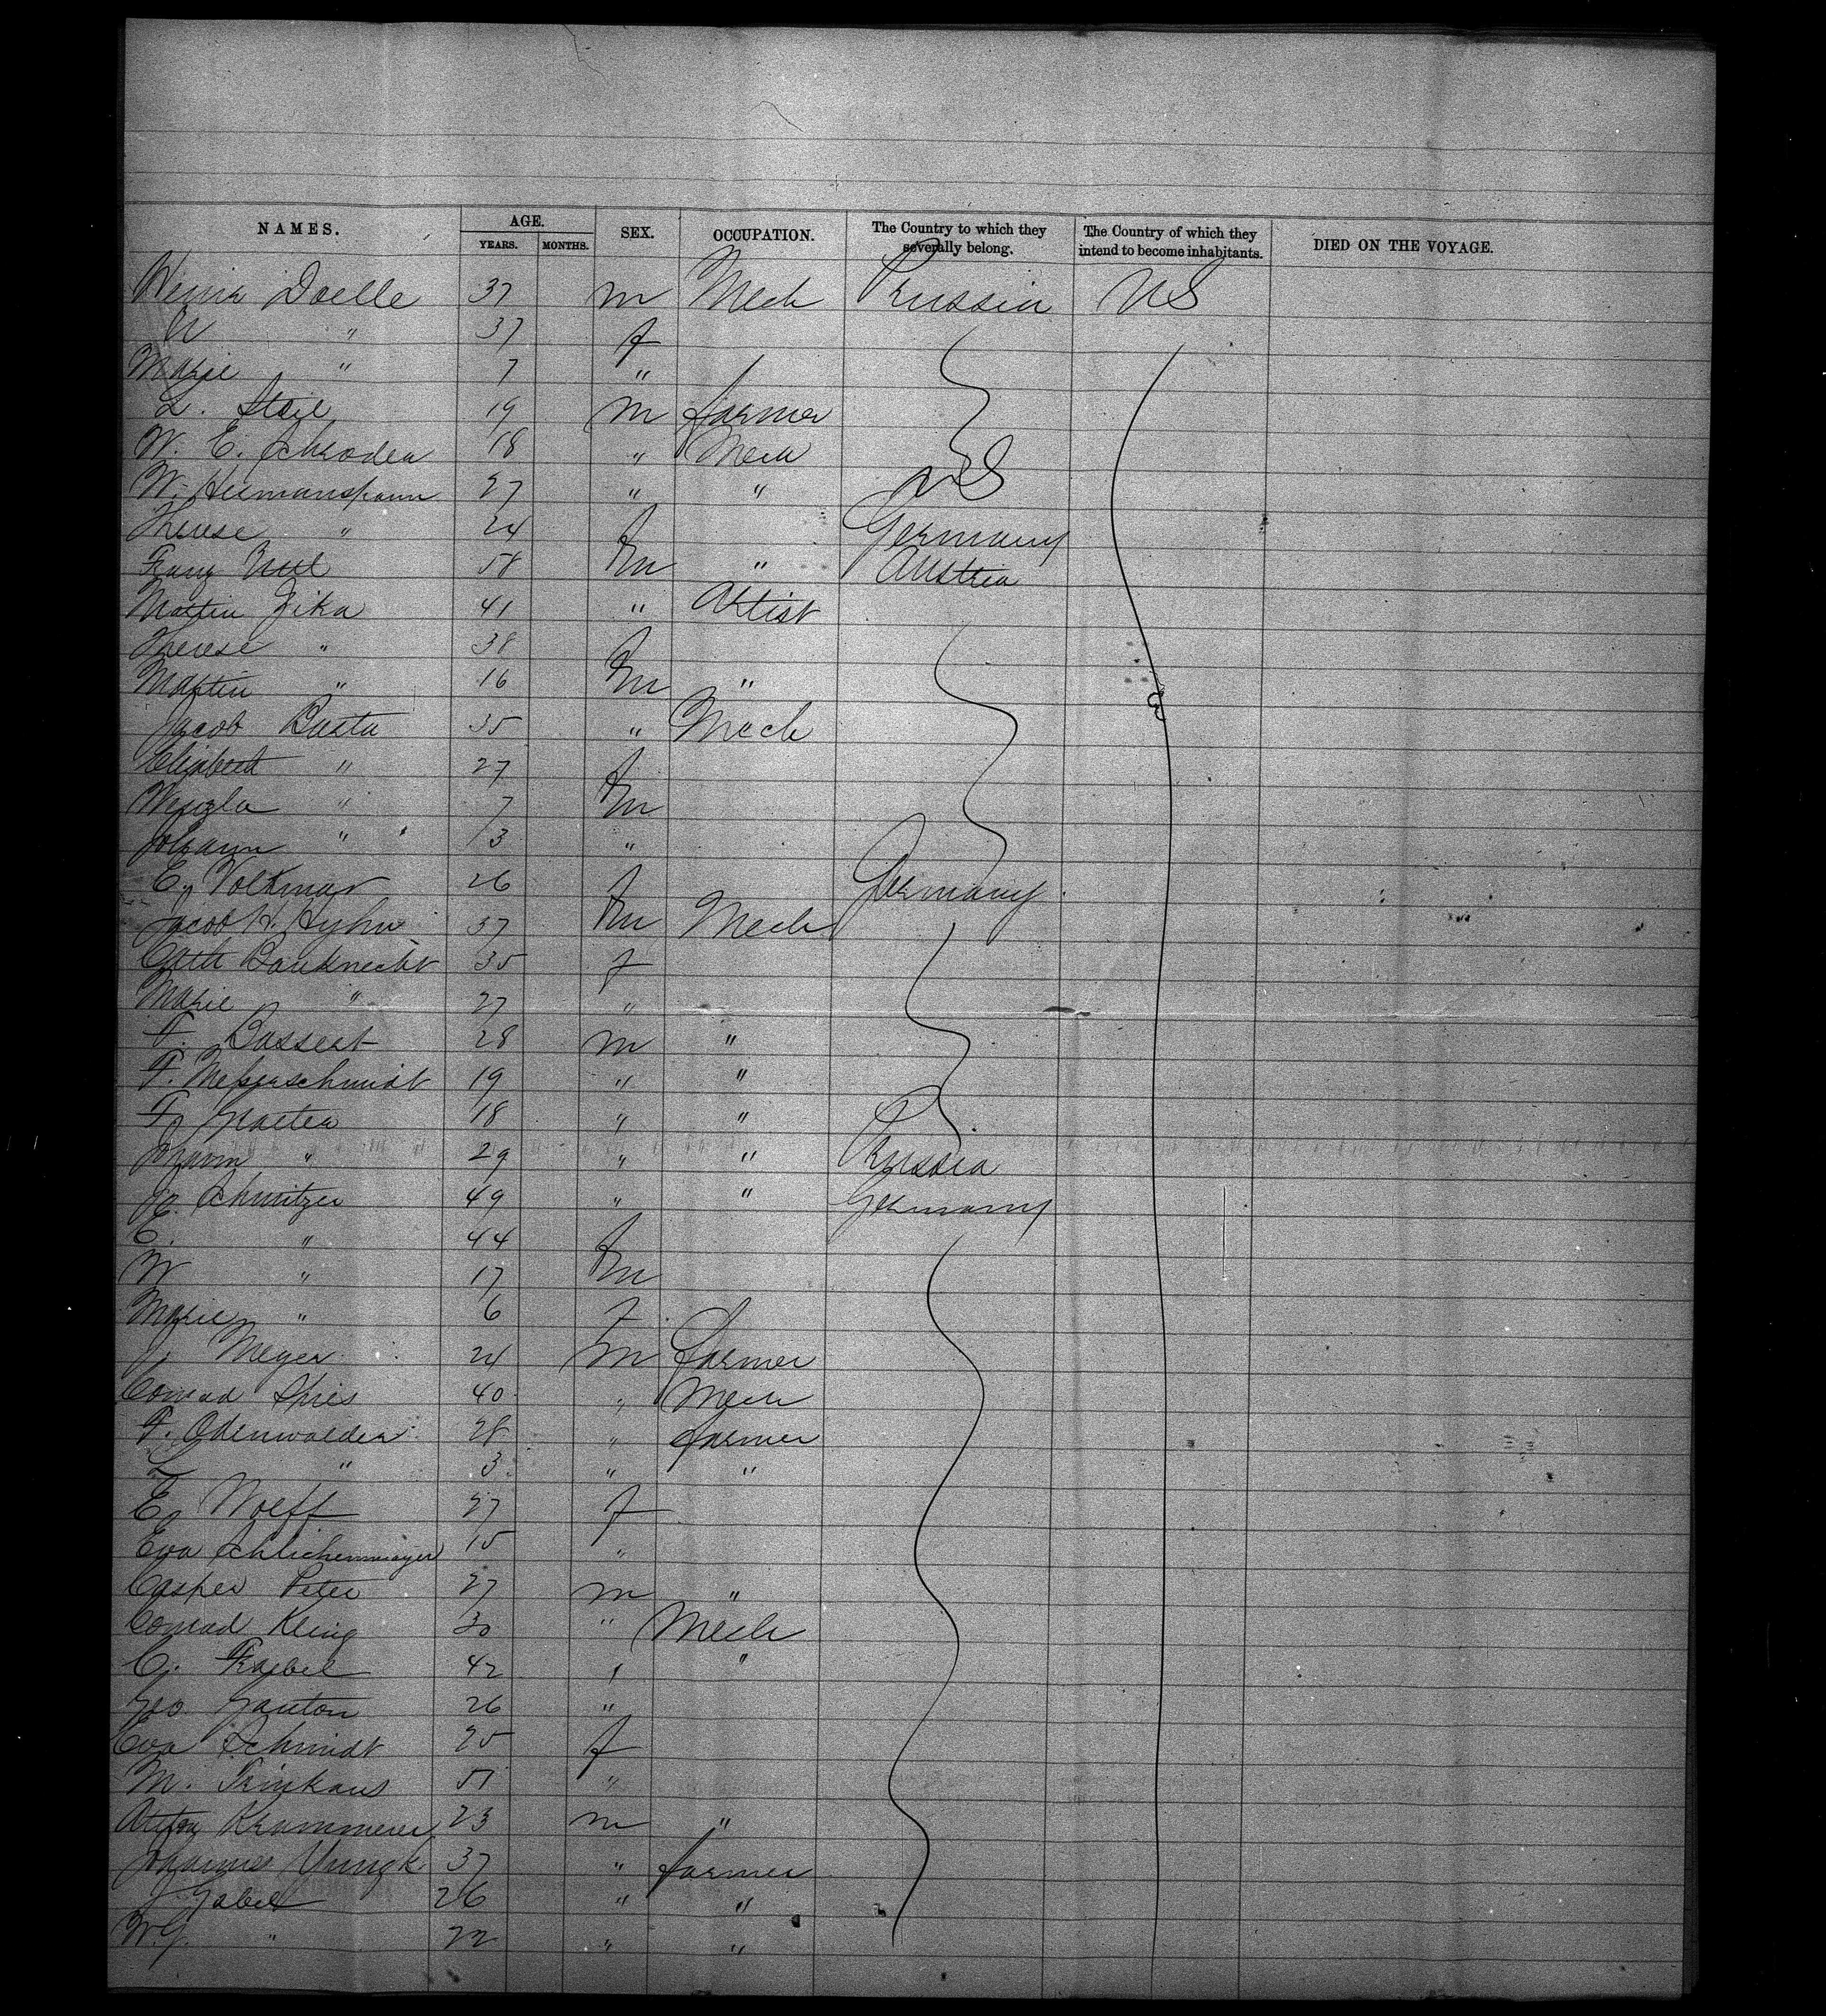 NAMES. AGE. YEARS. MONTHS. SEX. OCCUPATION. The Country to which they severally belong. The Country of which they intend to become inhabitants. DIED ON THE VOYAGE.
Doelle 37 m Mech Prussia US
W " 37 f
Marie " 7 "
L. Stoil 19 m farmer
W. E. Schroder 18 " Mech
W. Hermanspann 27 " " US
Therese " 24 f Germany
Franz 58 m " Austria
Martin Zika 41 " Artist
Therese " 38 f
Martin " 16 m "
Jacob Basta 35 " Mech
Elizabeth " 27 f
" 7 m
Johann " /3 "
E. Volkmar 26 f Germany
Jacob H. 37 m Mech
Cath Bauknecht 35 f
Marie " 27 "
F. Bassert 28 m "
F. Messerschmidt 19 " "
F. 18 " "
" 29 " " Prussia
Schmitzer 49 " " Germany
E. " 44 f
W " 17 m
Marie " 6 f
J. Meyer 24 m farmer
Conrad Spies 40 " Mech
F. Odenwalder 28 " farmer
L " 3 " "
E. Wolff 27 f
Eva Schlichenmayer 15 "
Casper Peter 27 m "
Conrad Kling 30 " Mech
C. Froebel 42 " "
Geo Ganton 26 "
Eva Schmidt 25 f
M. Trinkaus 51 "
Anton Krammerer 23 m "
Johannes Yungk 37 " farmer
J. Gabel 26 " "
W. G. " 22 " "